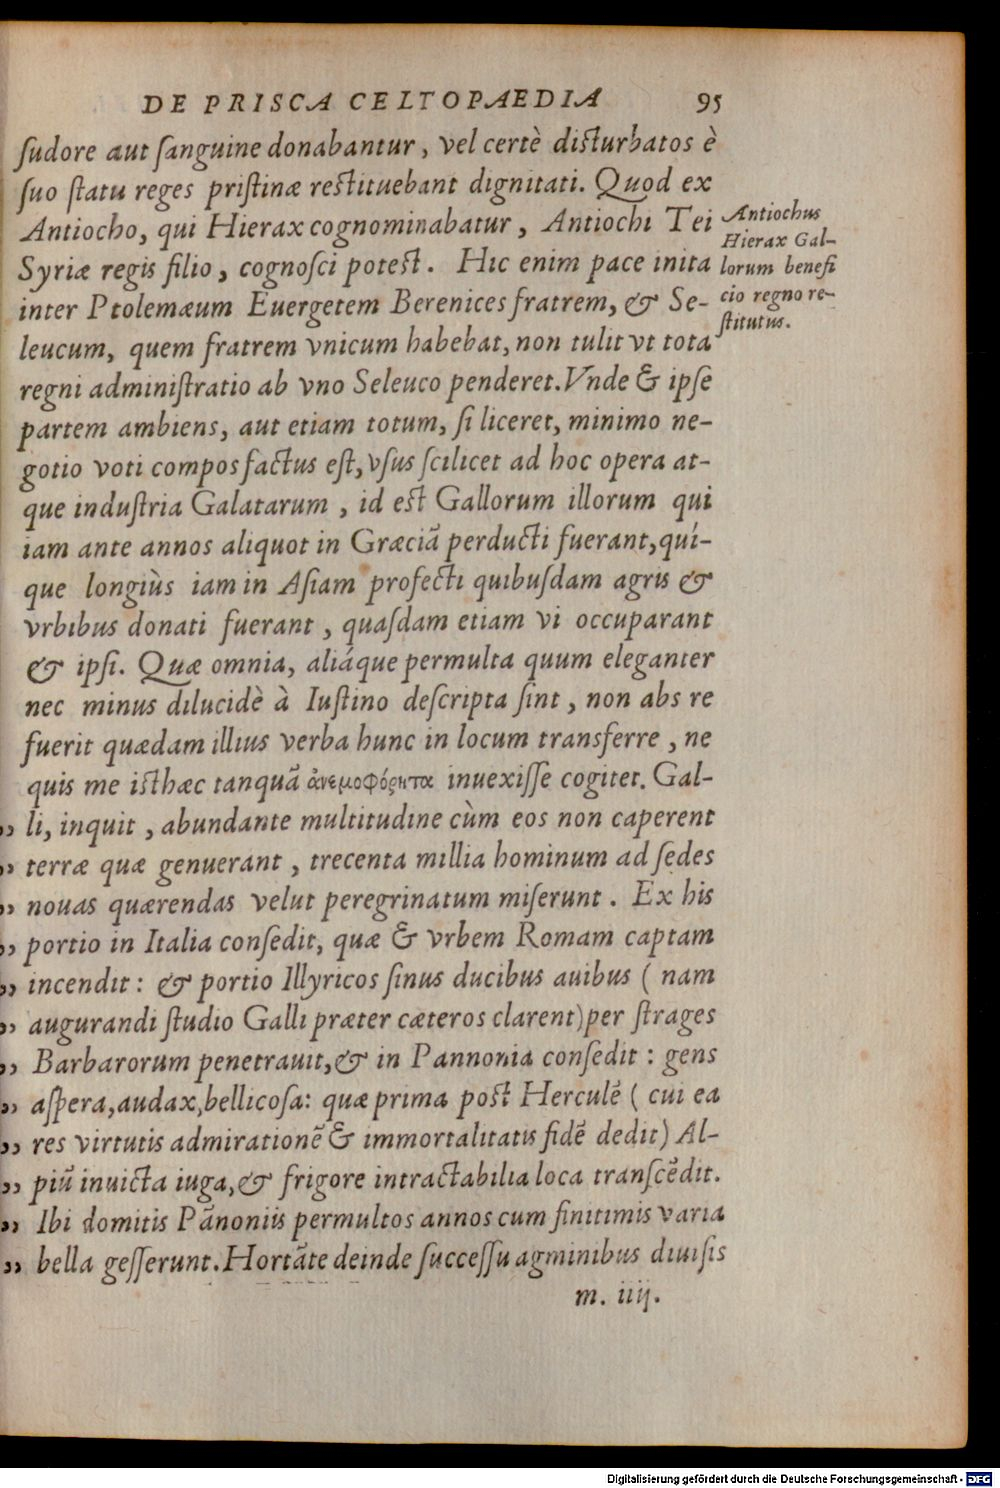 DE PRISCA CELTOPAEDIA 95
ſudore aut ſanguine donabantur, vel certè diſturbatos è
ſuo ſtatu reges priſtinæ reſtituebant dignitati. Quod ex
Antiocho, qui Hierax cognominabatur, Antiochi Tei
Syriæ regis filio, cognoſci poteſt. Hic enim pace inita
inter Ptolemæum Euergetem Berenices fratrem, & Se-
leucum, quem fratrem vnicum habebat, non tulit vt tota
regni adminiſtratio ab vno Seleuco penderet. Vnde & ipſe
partem ambiens, aut etiam totum, ſi liceret, minimo ne-
gotio voti compos factus eſt, vſus ſcilicet ad hoc opera at-
que induſtria Galatarum, id eſt Gallorum illorum qui
iam ante annos aliquot in Græciā perducti fuerant, quí-
que longiùs iam in Aſiam profecti quibuſdam agris &
vrbibus donati fuerant, quaſdam etiam vi occuparant
& ipſi. Quæ omnia, aliáque permulta quum eleganter
nec minus dilucidè à Iuſtino deſcripta ſint, non abs re
fuerit quædam illius verba hunc in locum transferre, ne
quis me iſthæc tanquā ἀνεμοφόρητα inuexiſſe cogitet. Gal-
„ li, inquit, abundante multitudine cùm eos non caperent
„ terræ quæ genuerant, trecenta millia hominum ad ſedes
„ nouas quærendas velut peregrinatum miſerunt. Ex his
„ portio in Italia conſedit, quæ & vrbem Romam captam
„ incendit: & portio Illyricos ſinus ducibus auibus (nam
„ augurandi ſtudio Galli præter cæteros clarent) per ſtrages
„ Barbarorum penetrauit, & in Pannonia conſedit: gens
„ aſpera, audax, bellicoſa: quæ prima poſt Herculē (cui ea
„ res virtutis admirationē & immortalitatis fidē dedit) Al-
„ piū inuicta iuga, & frigore intractabilia loca tranſcēdit.
„ Ibi domitis Pānoniis permultos annos cum finitimis varia
„ bella geſſerunt. Hortāte deinde ſucceſſu agminibus diuiſis
m. iiij.
Antiochus
Hierax Gal-
lorum benefi
cio regno re-
ſtitutus.
Digitalisierung gefördert durch die Deutsche Forschungsgemeinschaft - DFG